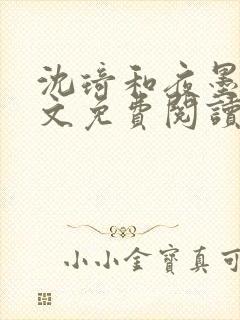 沈琦和夜墨
文免費閱讀
小小金寶真可